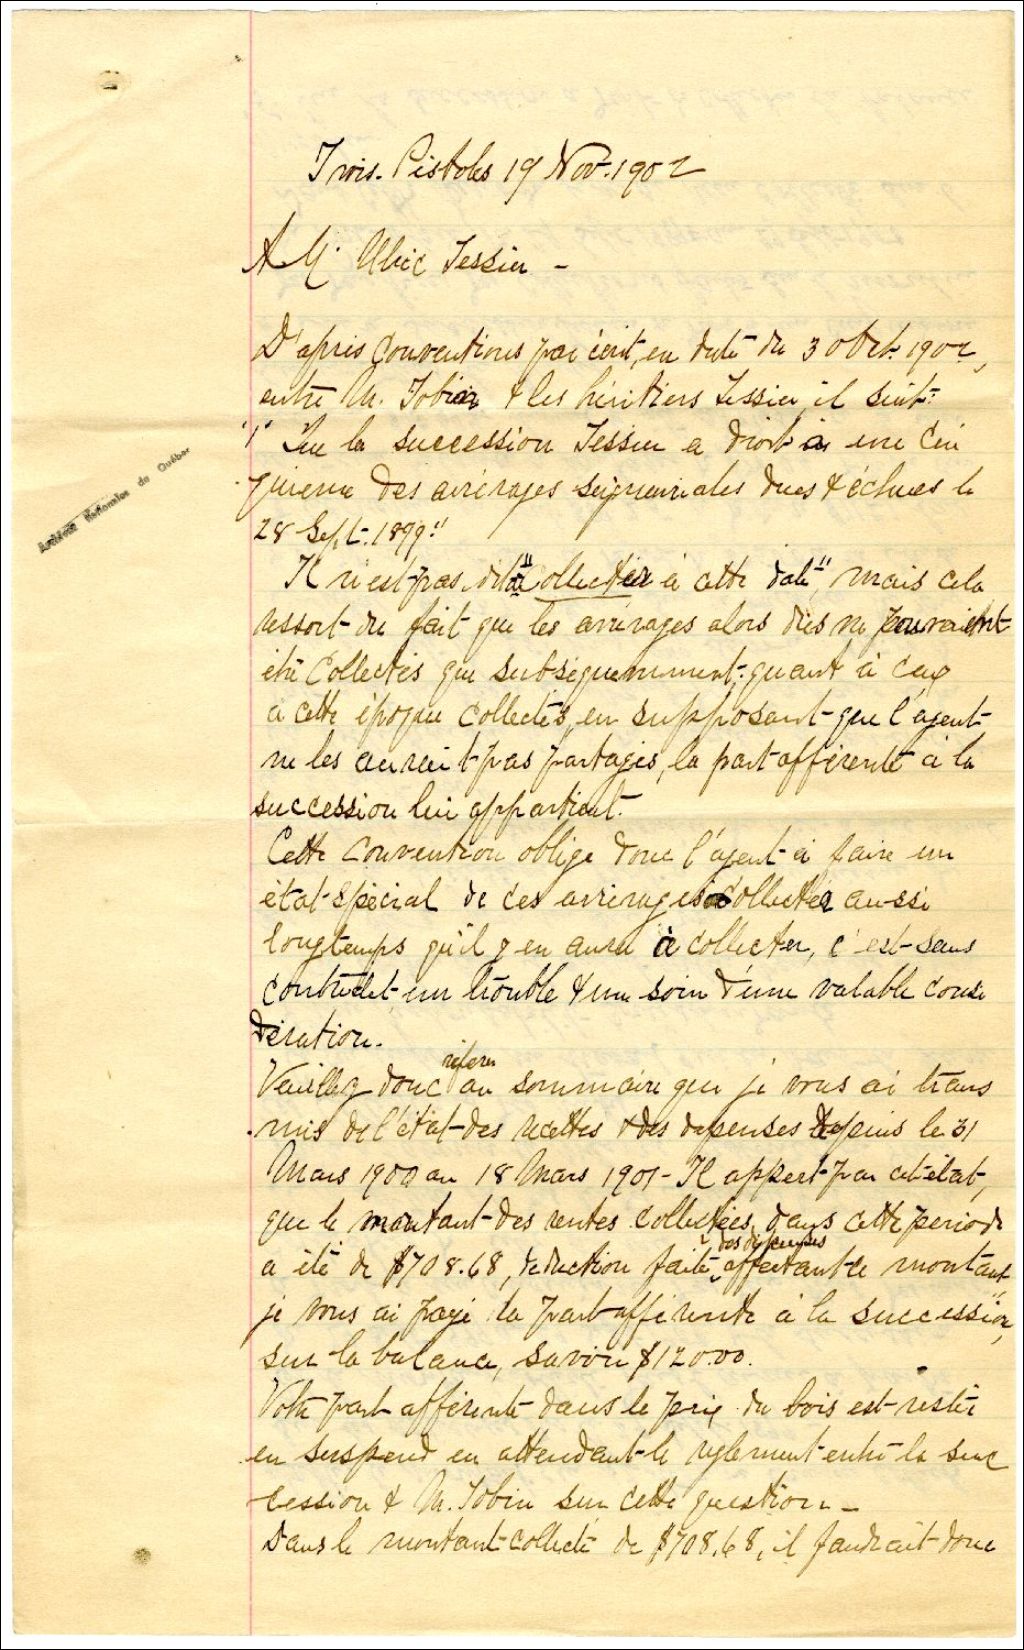 Trois-Pistoles 19 Nov. 1902
A M. Ulric Tessier -
D'après conventions par écrit, en date du 3 Oct. 1902,
entre M. Tobin & les héritiers Tessier il suit:
"1° Que la succession Tessier a droit à une cin
quième des arrérages seigneuriales dues & échues le
28 Sept. 1899."
Archives Nationales du Québec
Il n'est pas dit "à collecter à cette date", mais cela
ressort du fait que les arrérages alors dûs ne pouvaient
être collectés que subséquemment; quant à ceux
à cette époque collectés, en supposant que l'agent
ne les aurait pas partagés, la part afférente à la
succession lui appartient.
Cette convention oblige donc l'agent à faire un
état spécial de ces arrérages à collecter aussi
longtemps qu'il y en aura à collecter, c'est sans
contredit un trouble & un soin d'une valable consi
dération.
Veuillez donc référer au sommaire que je vous ai trans
mis de l'état des recettes & des dépenses depuis le 31
Mars 1900 au 18 Mars 1901 - Il appert par cet état,
que le montant des rentes collectées dans cette période
a été de $708.68, déduction faite des dépenses affectant ce montant
je vous ai payé la part afférente à la succession,
sur la balance, savoir $120.00.
Votre part afférente dans le prix du bois est restée
en suspend en attendant le règlement entre la suc
cession & M. Tobin sur cette question -
Dans le montant collecté de $708.68, il faudrait donc